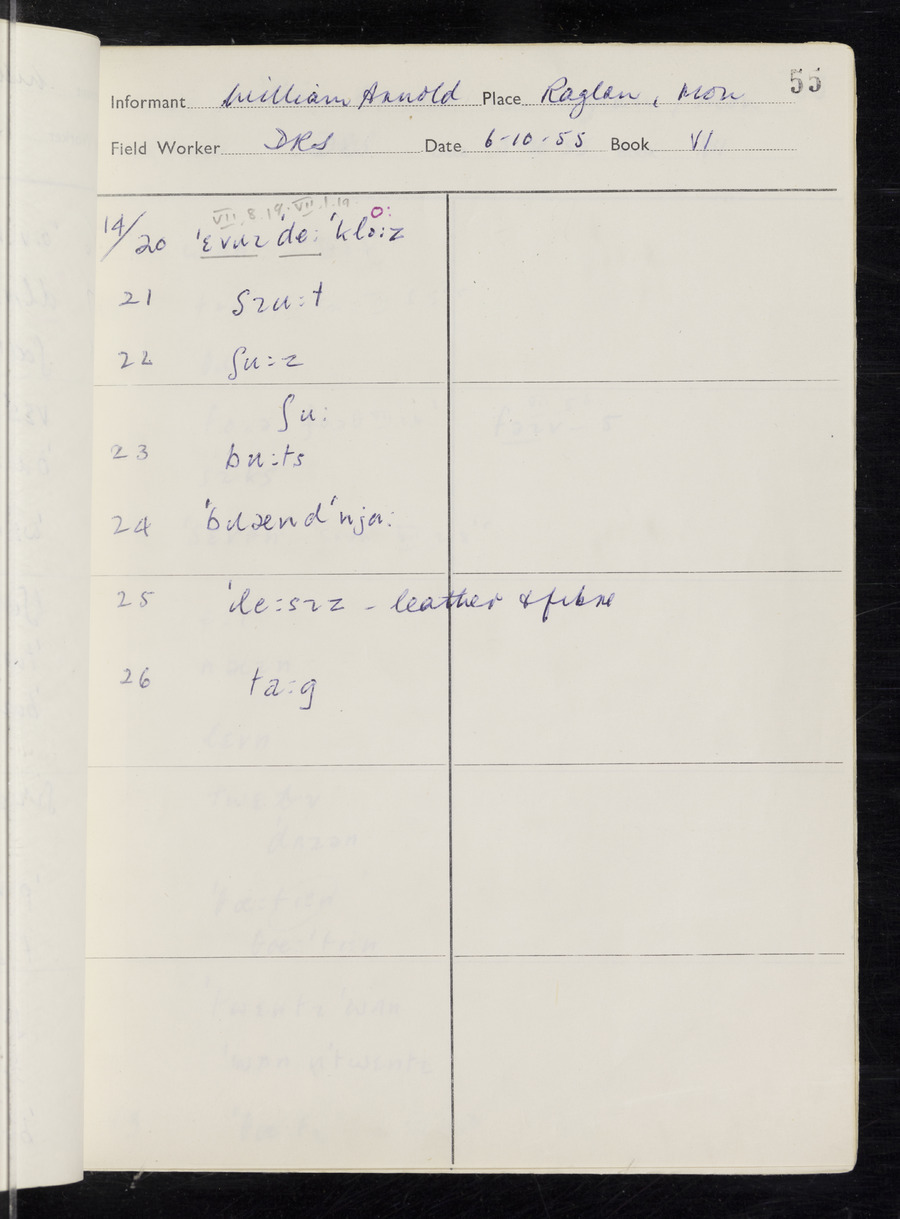 55
Informant William Arnold Place Raglan, Mon
Field Worker DRS Date 6-10-55 Book VI
VII.8.19. VII.1.19
o:
14/20 ˈɛvɹɪ ˈde: ˈklɔ:z
21 sɪu:t
22 ʃu:z
ʃu:
23 bu:ts
24 ˈbɹænd ˈnju:
25 ˈle:sɪz - leather & fibre
26 ta:g